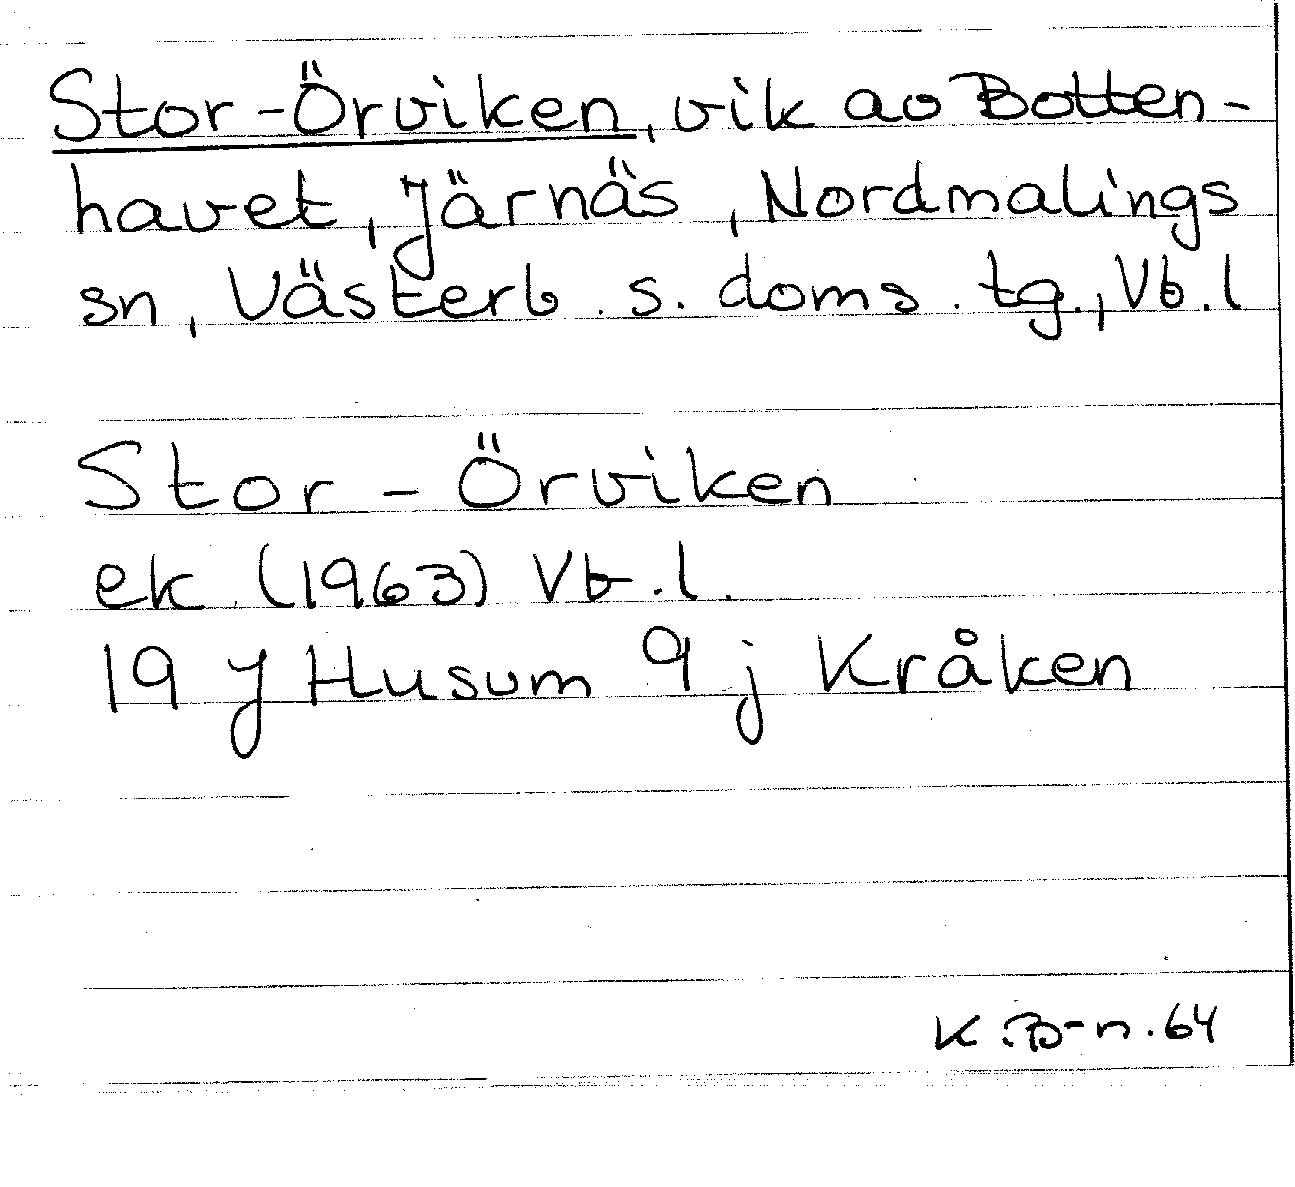 Stor-Örviken, vik av Botten-
havet, Järnäs, Nordmalings
sn, Västerb. s. doms. tg., Vb. l
Stor-Örviken
ek. (1963) Vb. l.
19 J Husum 9 j Kråken
K. B-n. 64